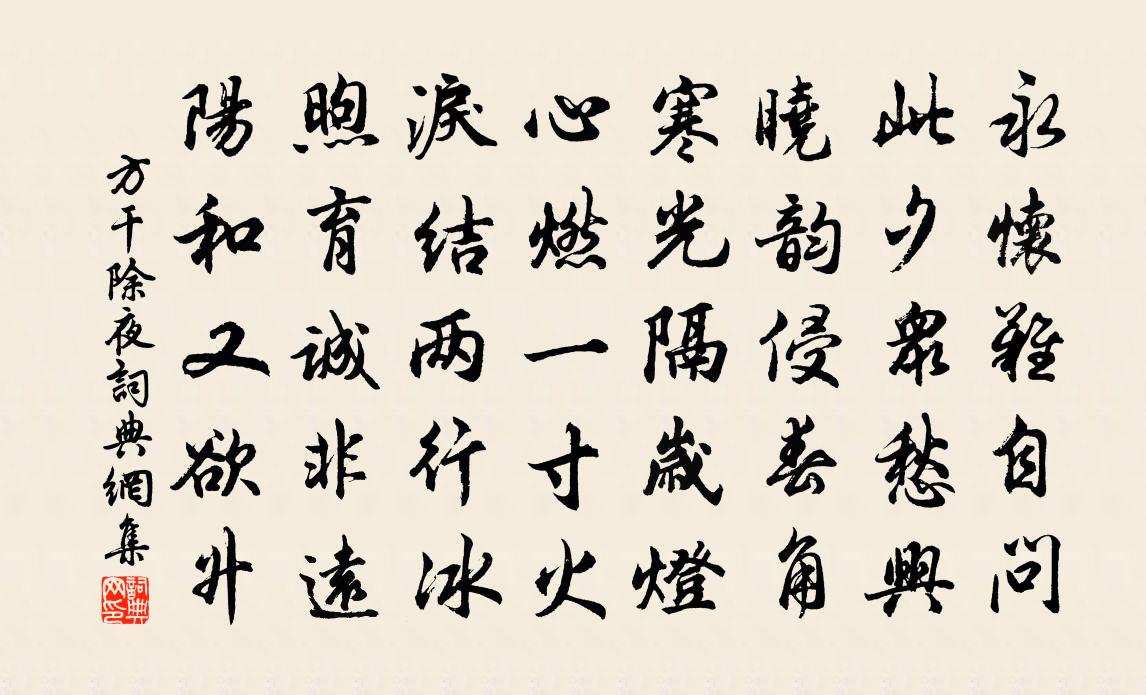 永懷難自問
此夕衆愁興
曉韵侵春角
寒光隔歲燈
心燃一寸火
淚結两行冰
煦育誠非遠
陽和又欲升
方干除夜詞典網集
詞典网印